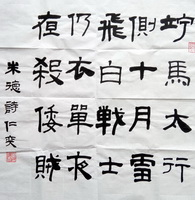 竚馬太行
側十月雪
飛白戰士
仍衣單夜
夜殺倭賊
朱德詩仁奕